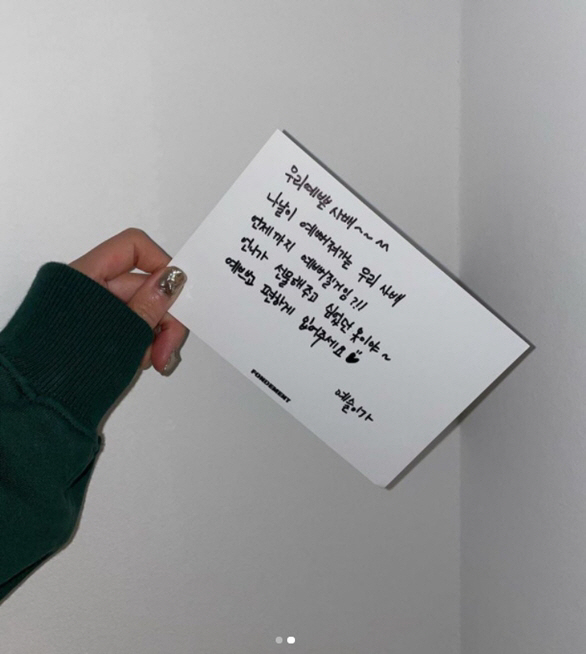 우리예쁜 사배~~^^
나날이 예뻐져가는 우리 사배
언제까지 예뻐질거임?!!
언니가 선물해주고 싶었던 옷이야~
예쁘고 편하게 입어주세요
예슬이가
FONDEMENT